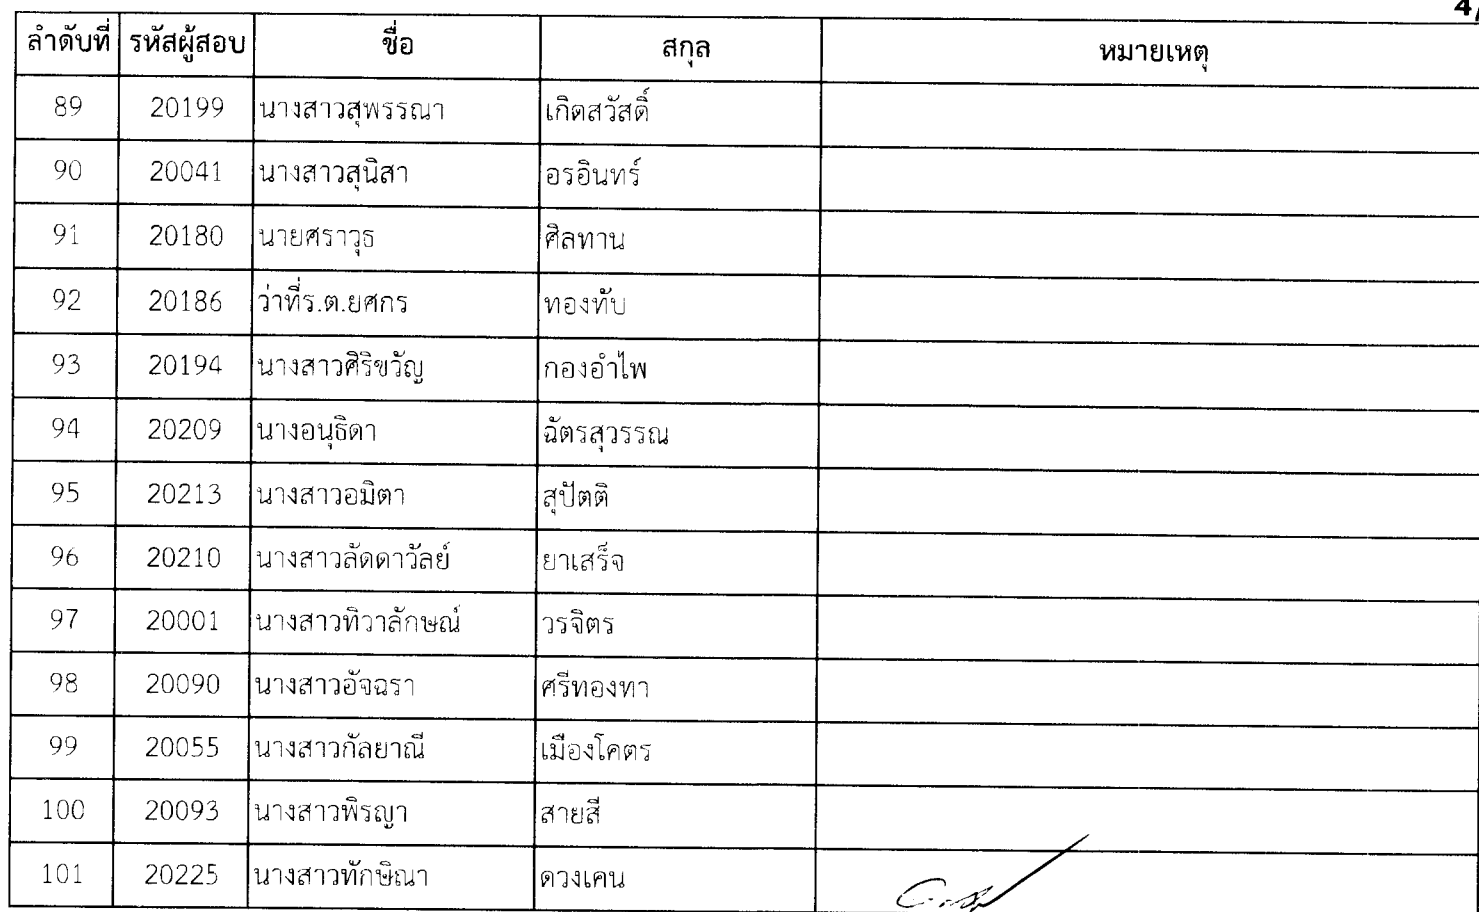 4/
ลำดับที่ รหัสผู้สอบ ชื่อ สกุล หมายเหตุ
89 20199 นางสาวสุพรรณา เกิดสวัสดิ์
90 20041 นางสาวสุนิสา อรอินทร์
91 20180 นายศราวุธ ศิลทาน
92 20186 ว่าที่ร.ต.ยศกร ทองทับ
93 20194 นางสาวศิริขวัญ กองอำไพ
94 20209 นางอนุธิดา ฉัตรสุวรรณ
95 20213 นางสาวอมิตา สุปัตติ
96 20210 นางสาวลัดดาวัลย์ ยาเสร็จ
97 20001 นางสาวทิวาลักษณ์ วรจิตร
98 20090 นางสาวอัจฉรา ศรีทองทา
99 20055 นางสาวกัลยาณี เมืองโคตร
100 20093 นางสาวพิรญา สายสี
101 20225 นางสาวทักษิณา ดวงเคน